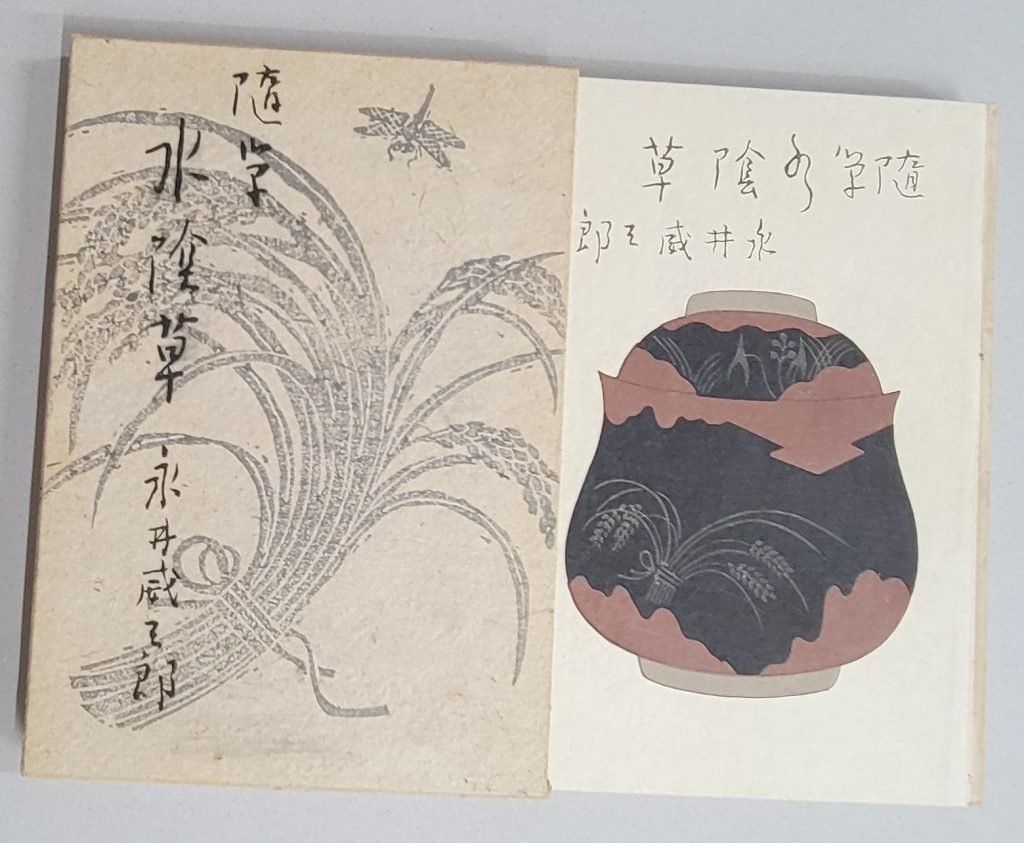 隨筆
水陰草
永井威三郎
隨筆水陰草
永井威三郎